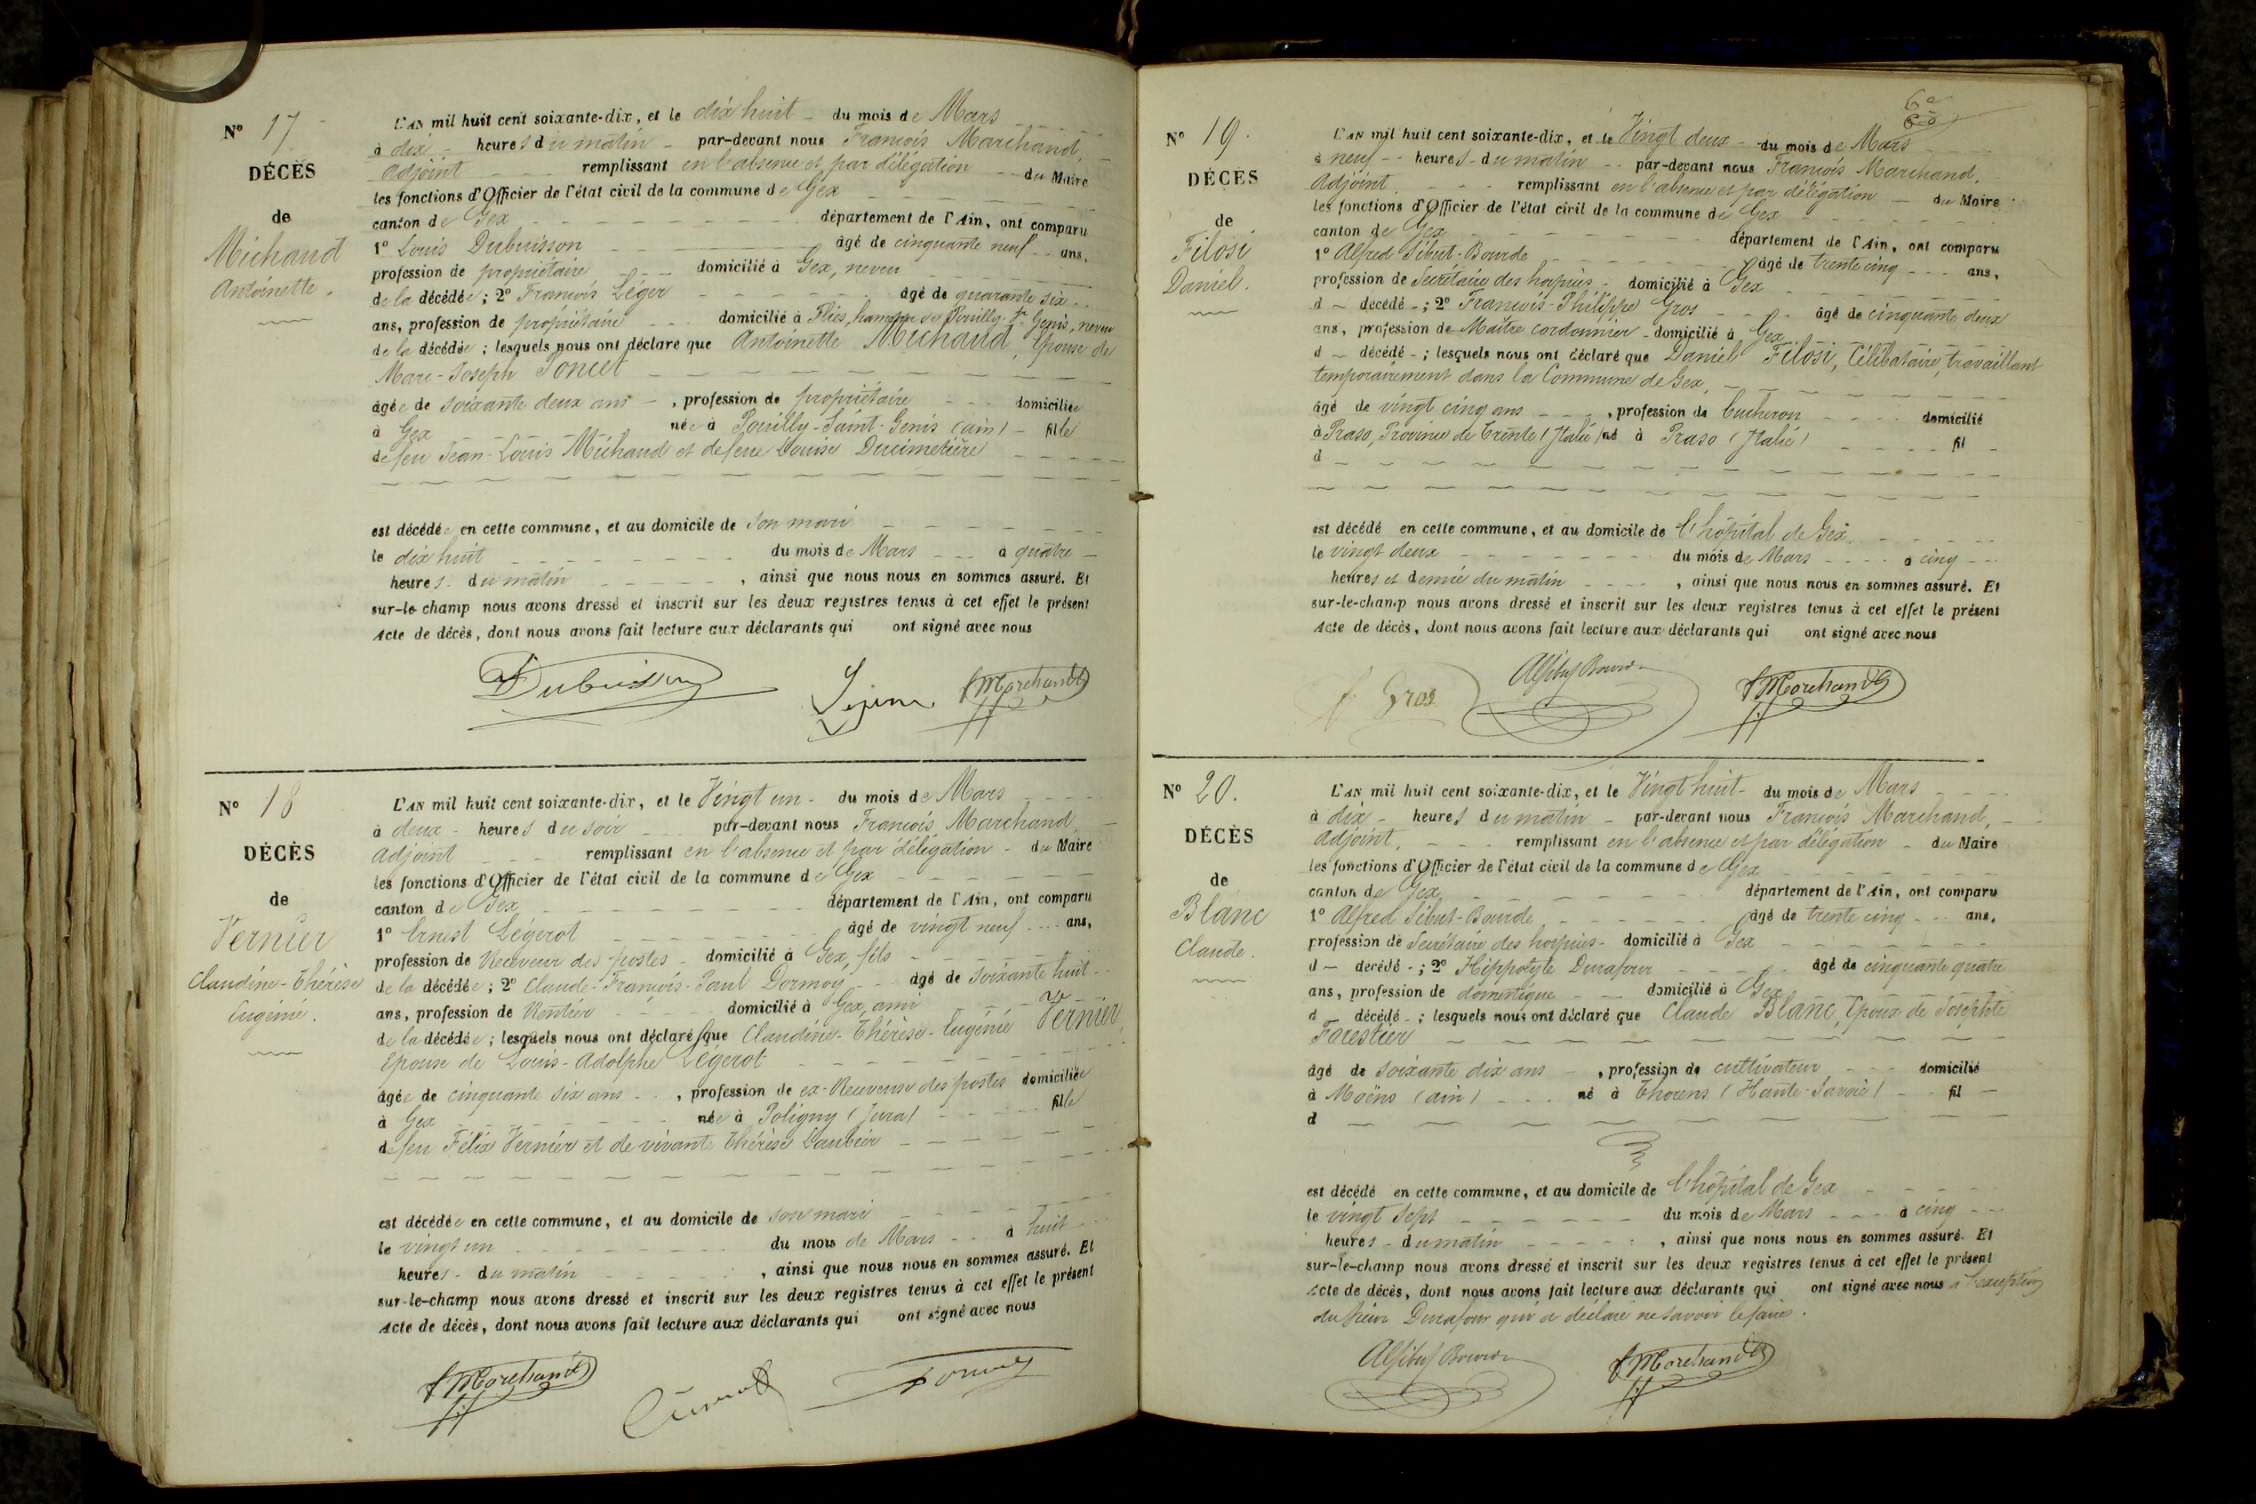 N° 17
DÉCÈS
de
Michaud
Antoinette.
L'AN mil huit cent soixante-dix, et le dix huit du mois de Mars
à dix heures du matin par-devant nous François Marchand,
adjoint remplissant en l'absence et par délégation du Maire
les fonctions d'Officier de l'état civil de la commune de Gex
canton de Gex département de l'Ain, ont comparu
1° Louis Dubuisson âgé de cinquante neuf ans,
profession de propriétaire domicilié à Gex, neveu
de la décédée ; 2° François Léger âgé de quarante six
ans, profession de propriétaire domicilié à Flies, hameau de Pouilly-St Genis, neveu
de la décédée ; lesquels nous ont déclaré que Antoinette Michaud, Epouse de
Marc-Joseph Poncet
âgée de soixante deux ans, profession de propriétaire domiciliée
à Gex née à Pouilly-Saint-Genis (ain) fille
de feu Jean-Louis Michaud et de feue Louise Ducimetière
est décédée en cette commune, et au domicile de son mari
le dix huit du mois de Mars à quatre
heures du matin, ainsi que nous nous en sommes assuré. Et
sur-le-champ nous avons dressé et inscrit sur les deux registres tenus à cet effet le présent
Acte de décès, dont nous avons fait lecture aux déclarants qui ont signé avec nous
Dubuisson F Marchand
N° 18
DÉCÈS
de
Vernier
Claudine-Thérèse
Eugénie.
L'AN mil huit cent soixante-dix, et le Vingt un du mois de Mars
à deux heures du soir par-devant nous François Marchand,
adjoint remplissant en l'absence et par délégation du Maire
les fonctions d'Officier de l'état civil de la commune de Gex
canton de Gex département de l'Ain, ont comparu
1° Ernest Légerot âgé de vingt neuf ans,
profession de Receveur des postes domicilié à Gex, fils
de la décédée ; 2° Claude-François-Paul Dormoy âgé de soixante huit
ans, profession de Rentier domicilié à Gex, ami
de la décédée ; lesquels nous ont déclaré que Claudine-Thérèse-Eugénie Vernier,
Epouse de Louis-Adolphe Légerot
âgée de cinquante six ans, profession de ex-Receveuse des postes domiciliée
à Gex née à Poligny (Jura) fille
de feu Félix Vernier et de vivante Thérèse Daubier
est décédée en cette commune, et au domicile de son mari
le vingt un du mois de Mars à huit
heures du matin, ainsi que nous nous en sommes assuré. Et
sur-le-champ nous avons dressé et inscrit sur les deux registres tenus à cet effet le présent
Acte de décès, dont nous avons fait lecture aux déclarants qui ont signé avec nous
F Marchand Dormoy
N° 19.
DÉCÈS
de
Filosi
Daniel.
L'AN mil huit cent soixante-dix, et le Vingt deux du mois de Mars
à neuf heures du matin par-devant nous François Marchand,
Adjoint, remplissant en l'absence et par délégation du Maire
les fonctions d'Officier de l'état civil de la commune de Gex
canton de Gex département de l'Ain, ont comparu
1° Alfred Sibut-Bourde âgé de trente cinq ans,
profession de Secrétaire des hospices domicilié à Gex
d décédé ; 2° François-Philippe Gros âgé de cinquante deux
ans, profession de Maître cordonnier domicilié à Gex
d décédé ; lesquels nous ont déclaré que Daniel Filosi, Célibataire, travaillant
temporairement dans la Commune de Gex,
âgé de vingt cinq ans, profession de bucheron domicilié
à Praso, Province de Trente (Italie) né à Praso (Italie) fil
d
est décédé en cette commune, et au domicile de l'hôpital de Gex
le vingt deux du mois de Mars à cinq
heures et demie du matin, ainsi que nous nous en sommes assuré. Et
sur-le-champ nous avons dressé et inscrit sur les deux registres tenus à cet effet le présent
Acte de décès, dont nous avons fait lecture aux déclarants qui ont signé avec nous
Gros F Marchand
N° 20.
DÉCÈS
de
Blanc
Claude.
L'AN mil huit cent soixante-dix, et le Vingt huit du mois de Mars
à dix heures du matin par-devant nous François Marchand,
Adjoint, remplissant en l'absence et par délégation du Maire
les fonctions d'Officier de l'état civil de la commune de Gex
canton de Gex département de l'Ain, ont comparu
1° Alfred Sibut-Bourde âgé de trente cinq ans,
profession de Secrétaire des hospices domicilié à Gex
d décédé ; 2° Hippolyte Durafour âgé de cinquante quatre
ans, profession de domestique domicilié à Gex
d décédé ; lesquels nous ont déclaré que Claude Blanc, Epoux de Josephte
Forestier
âgé de soixante dix ans, profession de cultivateur domicilié
à Moëns (ain) né à Thorens (Haute-Savoie) fil
d
est décédé en cette commune, et au domicile de l'hôpital de Gex
le vingt sept du mois de Mars à cinq
heures du matin, ainsi que nous nous en sommes assuré. Et
sur-le-champ nous avons dressé et inscrit sur les deux registres tenus à cet effet le présent
Acte de décès, dont nous avons fait lecture aux déclarants qui ont signé avec nous à l'exception
du sieur Durafour qui a déclaré ne savoir le faire.
F Marchand